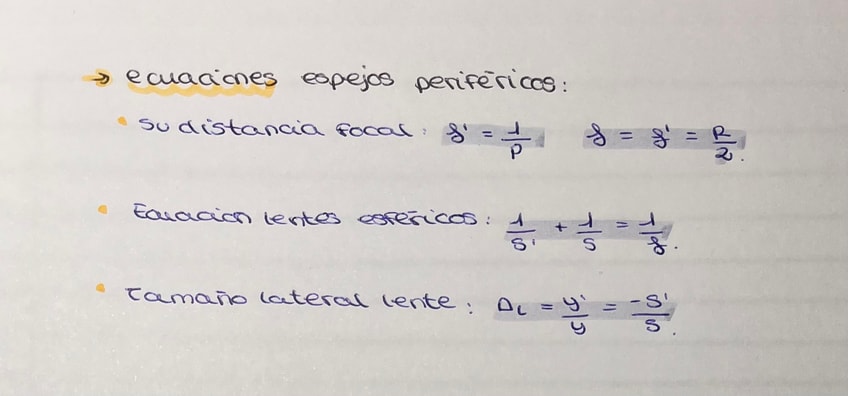 → ecuaciones espejos periféricos:
• su distancia focal: f' = 1/P f = f' = R/2.
• Ecuación lentes esféricos: 1/s' + 1/s = 1/f.
• Tamaño lateral lente: AL = y'/y = -s'/s.